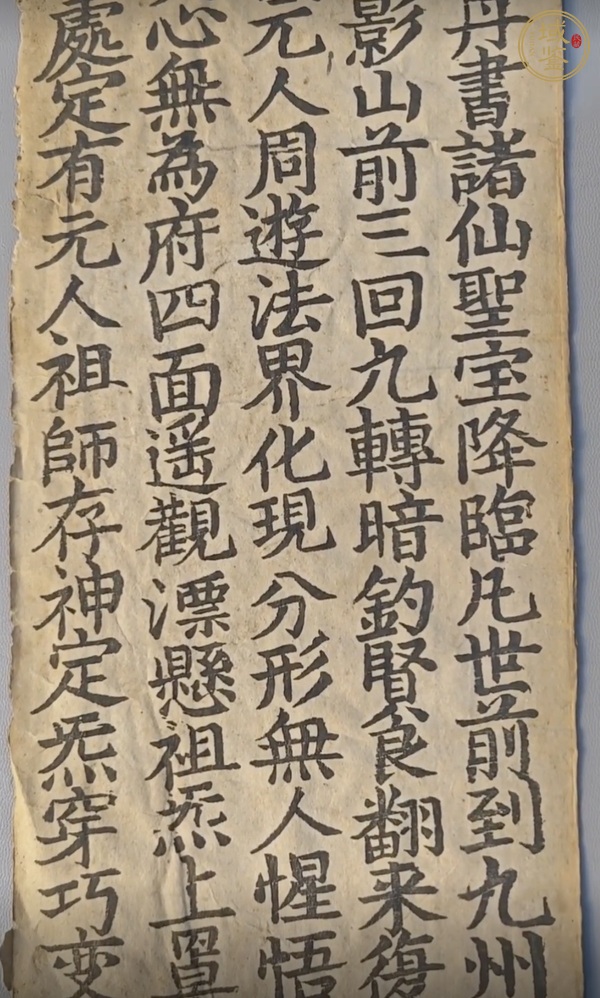 丹書諸仙聖宝降臨凡世前到九州
影山前三回九轉暗釣賢良翻来復
元人周遊法界化現分形無人惺悟
心無為府四面遥觀漂懸祖炁上罩
處定有元人祖師存神定炁穿巧变